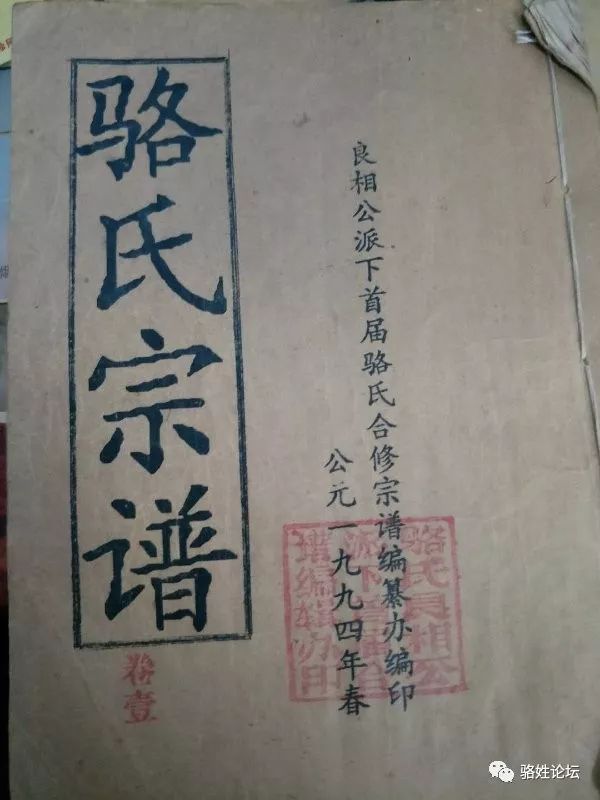 骆氏宗谱
卷壹
良相公派下首届骆氏合修宗谱编纂办编印
公元一九九四年春
骆氏良相公
骆姓论坛